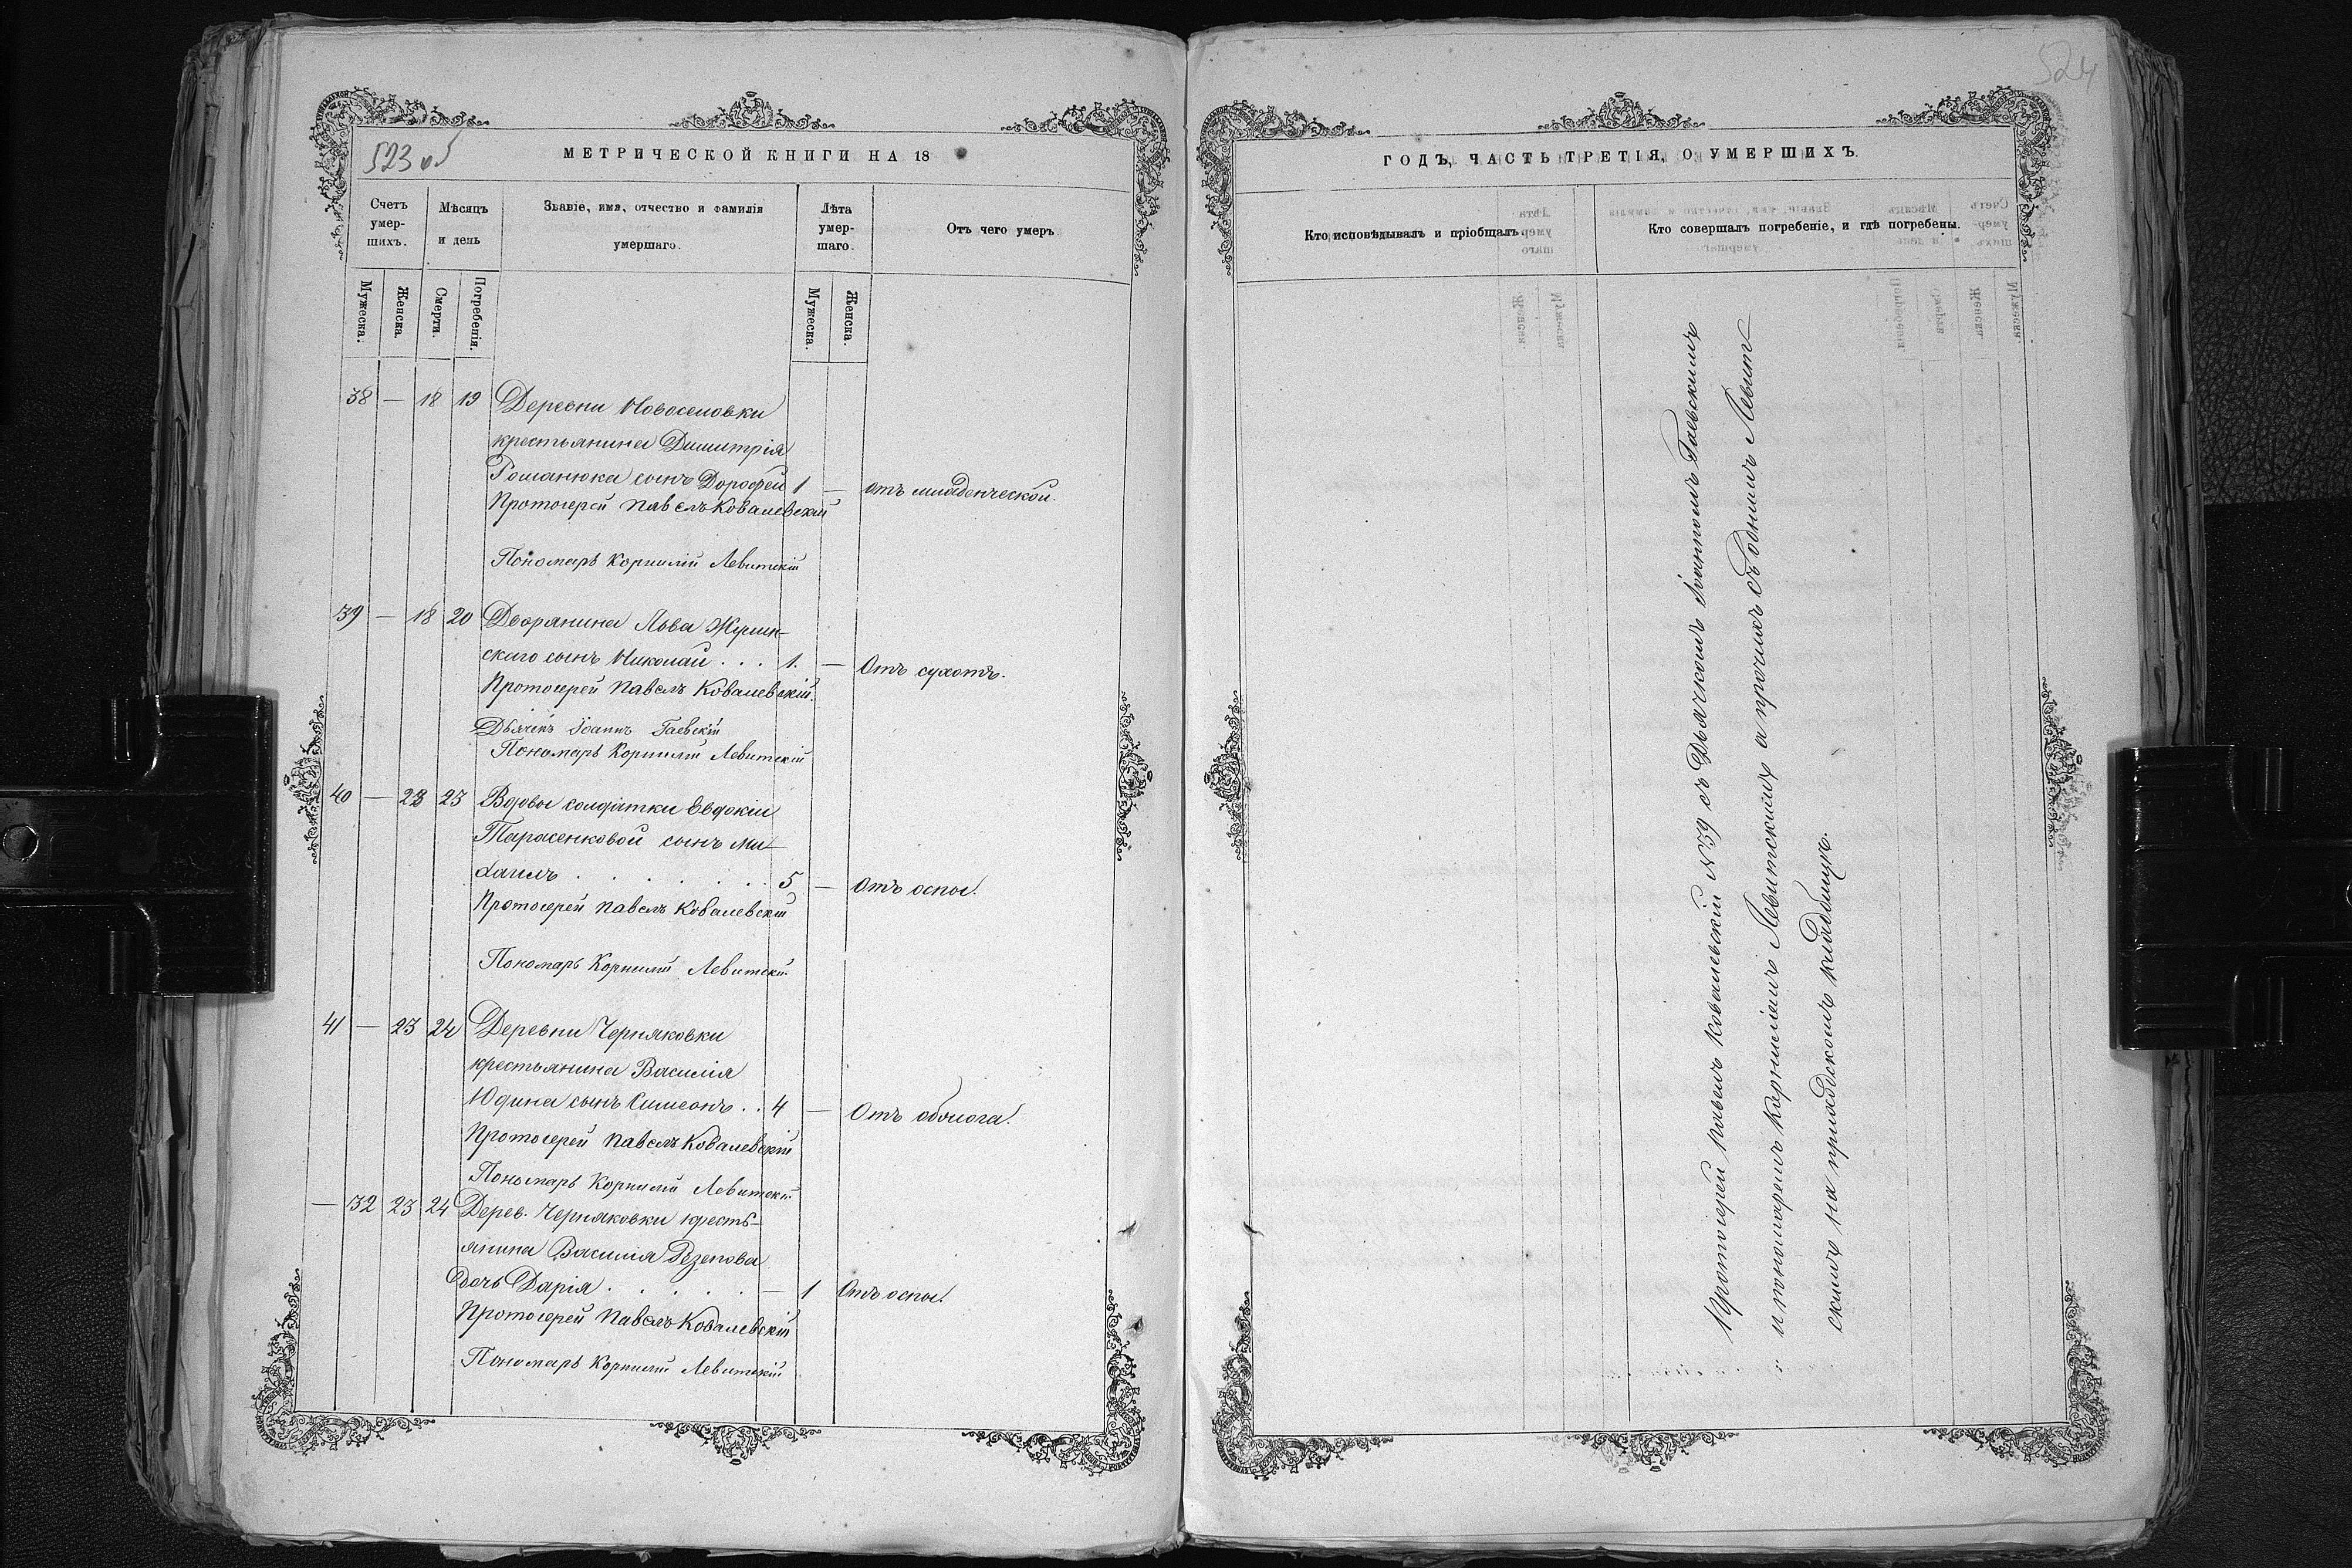 523 об
МЕТРИЧЕСКОЙ КНИГИ НА 18
Счетъ умер-шихъ.
Мѣсяцъ и день
Званіе, имя, отчество и фамилія умершаго.
Лѣта умер-шаго.
Отъ чего умеръ
Мужеска.
Женска.
Смерти.
Погребенія.
Мужеска.
Женска.
38 — 18 19 Деревни Новоселовки
крестьянина Димитрія
Романюка сынъ Дорофей 1 — отъ младенческой.
Протоіерей Павелъ Ковалевскій
Пономарь Корнилій Левитскій
39 — 18 20 Дворянина Льва Жулин-
скаго сынъ Николай . . . 1. — Отъ сухотъ.
Протоіерей Павелъ Ковалевскій.
Дьячекъ Іоаннъ Гаевскій
Пономарь Корнилій Левитскій
40 — 23 Вдовы солдатки Евдокіи
Тарасенковой сынъ Ми-
хаилъ . . . . . . . 5 — Отъ оспы.
Протоіерей Павелъ Ковалевскій
Пономарь Корнилій Левитскій
41 — 23 24 Деревни Черняковки
крестьянина Василія
Юдина сынъ Симеонъ . . 4 — Отъ облога.
Протоіерей Павелъ Ковалевскій
Пономарь Корнилій Левитскій
— 32 23 24 Дерев. Черняковки кресть-
янина Василія Рѣзепова
дочь Дарія . . . . . — 1 Отъ оспы.
Протоіерей Павелъ Ковалевскій
Пономарь Корнилій Левитскій
524
ГОДЪ, ЧАСТЬ ТРЕТІЯ, О УМЕРШИХЪ.
Кто исповѣдывалъ и пріобщалъ.
Кто совершалъ погребеніе, и гдѣ погребены.
Протоіерей Павелъ Ковалевскій №39 съ Дьячкомъ Іоанномъ Гаевскимъ
и пономаремъ Корниліемъ Левитскимъ а прочихъ съ однимъ Левит
скимъ на приходскомъ кладбищѣ.